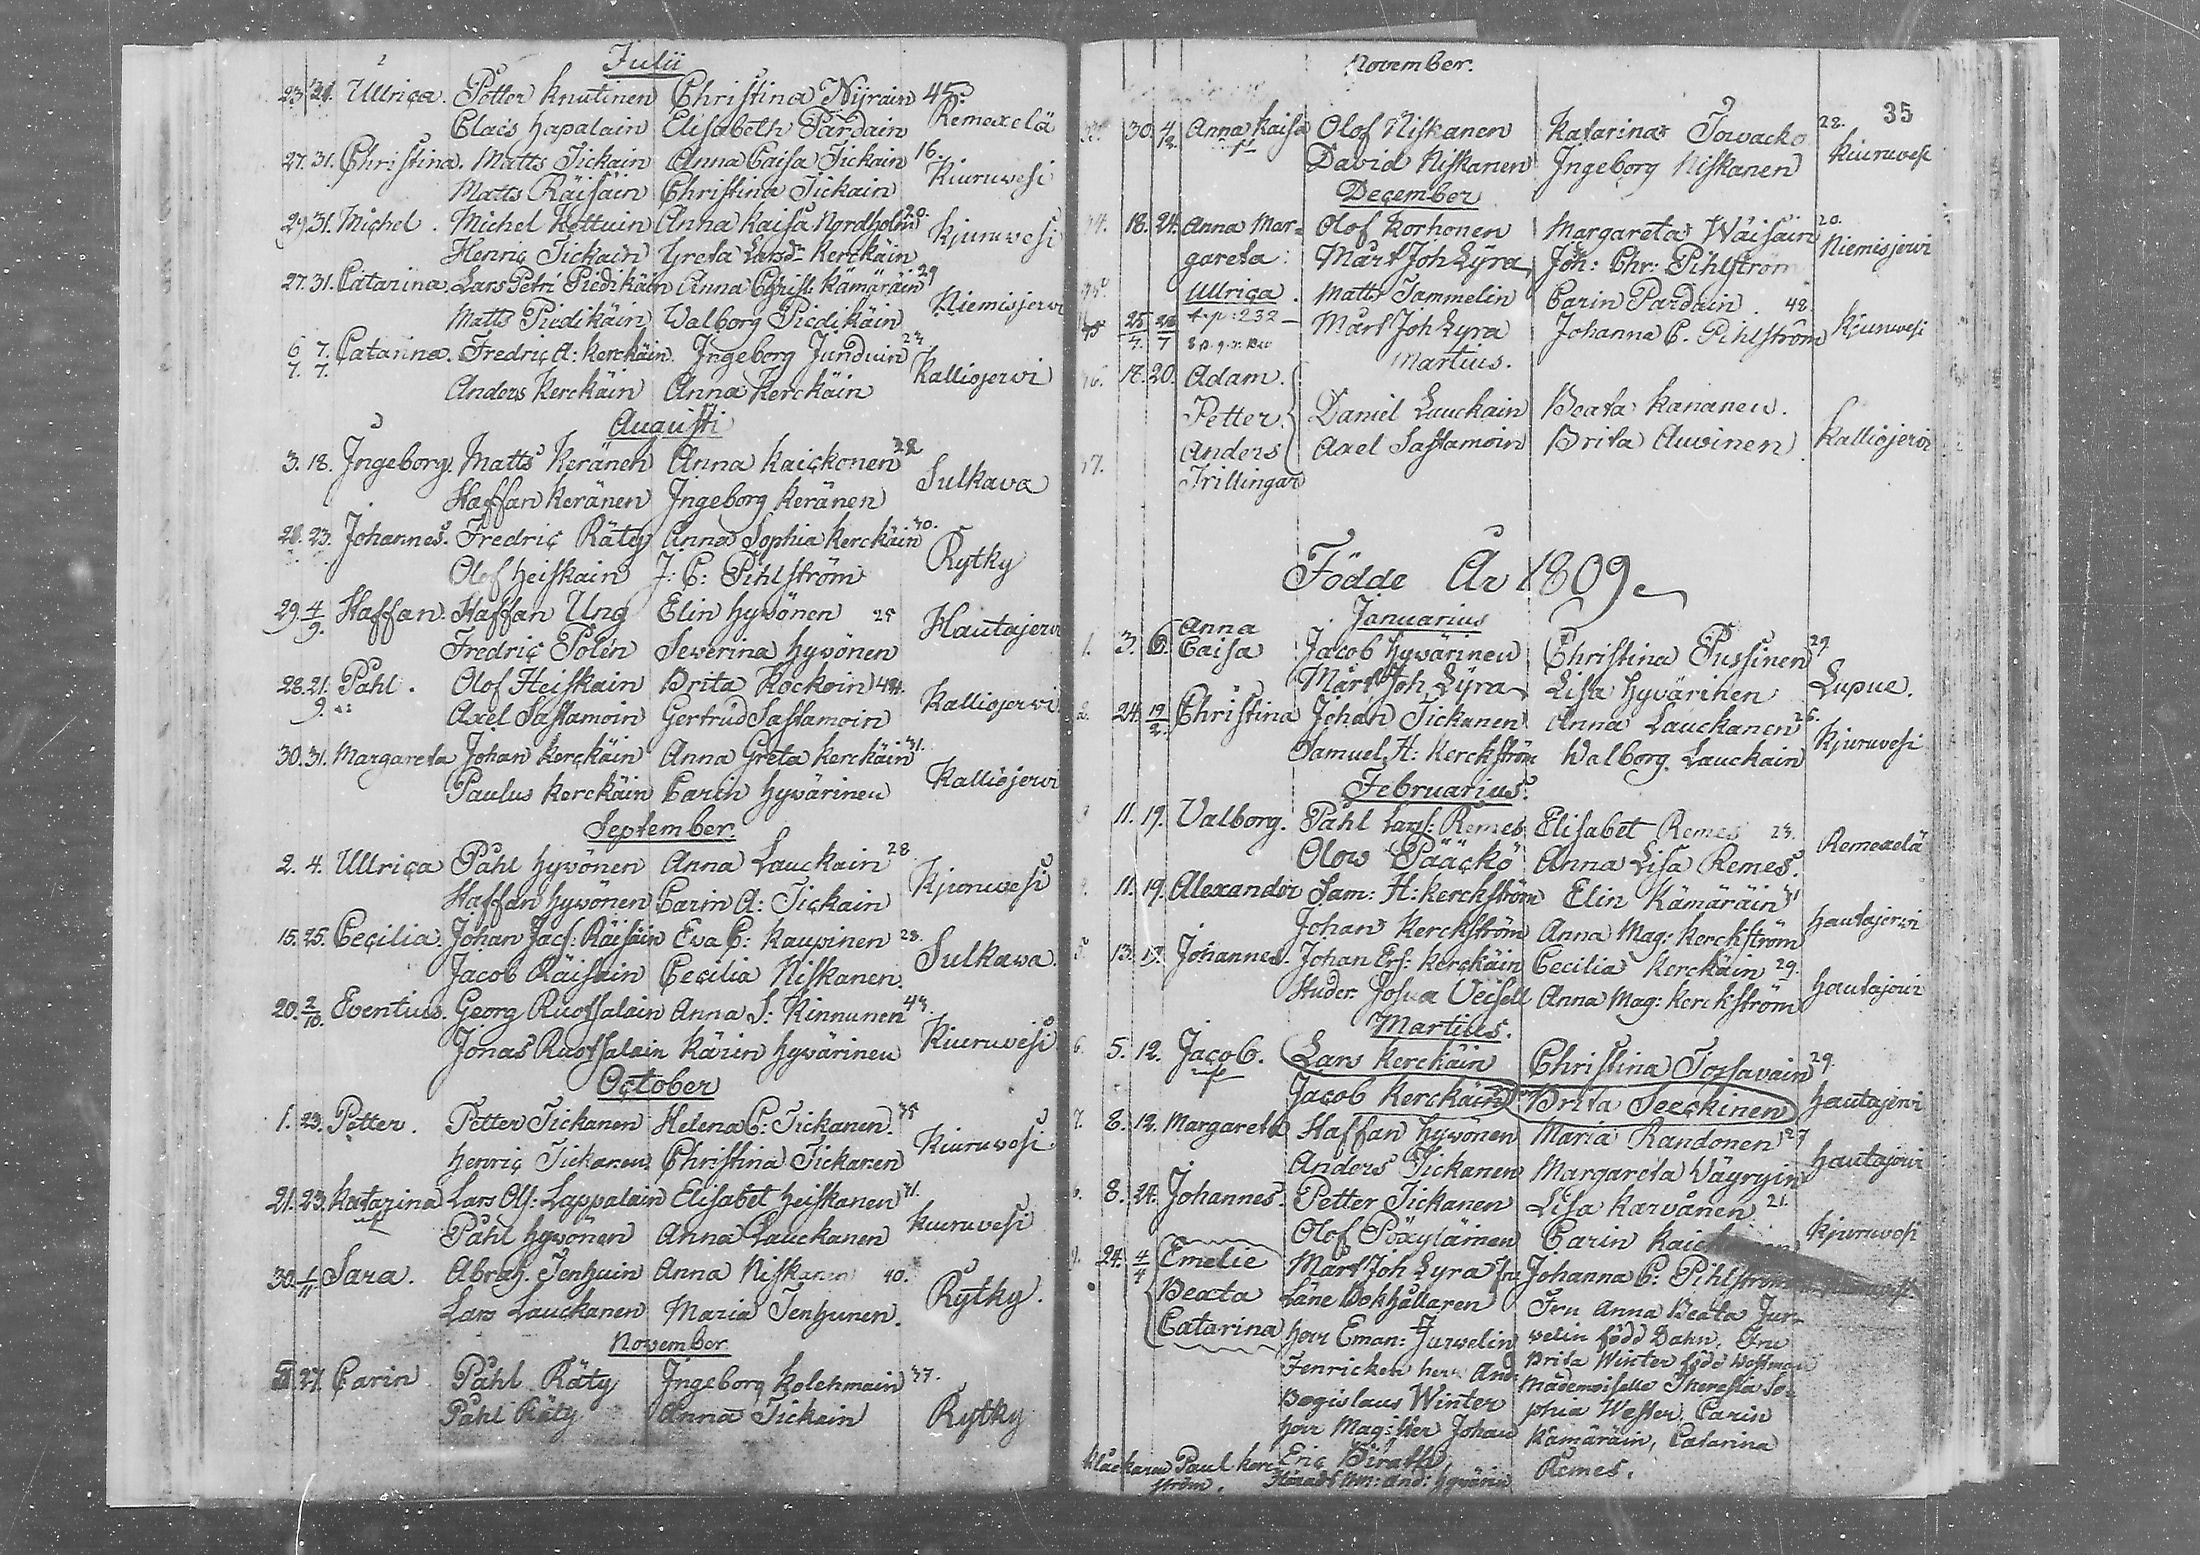 Julii
23. 24. Ullrica. Petter Knutinen Christina Nijrain 45.
Claës Hapalain Elisabeth Pardain Remexelä
27. 31. Christina. Matts Tickain Anna Caisa Tickain 16.
Matts Räisäin Christina Tickain Kiuruvesi
29. 31. Michel. Michel Kettuin Anna Kaisa Nordholm 20.
Henric Tickain Greta Larsdr Kerckäin Kjuruvesi
27. 31. Catarina. Lars Petri Piedikäin Anna Christ: Kämäräin 29
Matts Piedikäin Walborg Piedikäin Niemisjervi
6/7. 7/7. Catarina. Fredric A: Kerckäin. Ingeborg Junduin 23.
Anders Kerckäin Anna Kerckäin Kalliojervi
Augusti
3. 18. Ingeborg. Matts Keränen Anna Kaickonen 32
Staffan Keränen Ingeborg Keränen Sulkava
20. 23. Johannes. Fredric Räty Anna Sophia Kerckäin 40.
Olof Heiskain J: C: Pihlström Rytky
29. 4/9. Staffan. Staffan Ung Elin Hyvönen 25
Fredric Polén Severina Hyvönen Hautajervi
28. 21. 9. Påhl. Olof Heiskain Brita Kockoin 44.
Axel Sastamoin Gertrud Sastamoin Kalliojervi
30. 31. Margareta Johan Kerckäin Anna Greta Kerckäin 31.
Paulus Kerckäin Carin Hyvärinen Kalliojervi
September.
2. 4. Ullrica Påhl Hyvönen Anna Lauckain 28
Staffan Hyvönen Carin A: Tickain Kjuruvesi
15. 25. Cecilia. Johan Jacs: Räisäin Eva C: Kauvinen 23.
Jacob Räisäin Cecilia Niskanen. Sulkava.
20. 2/10. Eventius. Georg Ruotsalain Anna S: Kinnunen 43.
Jonas Ruotsalain Karin Hyvärinen Kiuruvesi
October
1. 23. Petter. Petter Tickanen Helena C: Tickanen. 35
Henric Tickanen Christina Tickanen Kiuruvesi
21. 23. Katarina Lars Ols: Lappalain Elisabet Heiskanen 31.
Påhl Hyvönen Anna Lauckanen Kiuruvesi
30. 1/11 Sara. Abrah. Tenhuin Anna Niskanen 40.
Lars Lauckanen Maria Tenhunen. Rytky.
November
27. Carin Påhl Räty Ingeborg Kolehmain 37.
Påhl Räty Anna Tickain Rytky
November.
35
30. 4/12 Anna Kaisa Olof Niskanen Katarina Towacko 28.
David Niskanen Ingeborg Niskanen Kiuruvesi
December
18. 24. Anna Mar- Olof Korhonen Margareta Wäisäin 20.
gareta: Mårt Joh Lyra Joh: Chr: Pihlström Niemisjervi
Ullrica. Matts Tammelin Carin Pardain. 48.
232 Mårt Joh Lyra Johanna C. Pihlström Kjuruvesi
Martius.
46. 17. 20. Adam.
Petter. Daniel Lauckain Beata Kananen.
47. Anders Axel Sastamoin Brita Auvinen Kalliojervi
Trillingar
Födde År 1809
Januarius
Anna
1. 3. 6. Caisa Jacob Hyvärinen Christina Pussinen 27.
Mårt Joh Lyra Lisa Hyvärinen Lupue.
2. 24. 19/2. Christina Johan Tickanen Anna Lauckanen 25.
Samuel H: Kerckström Walborg Lauckain Kjuruvesi
Februarius.
11. 19. Valborg. Påhl Larss: Remes Elisabet Remes 23.
Olow Pääckö Anna Lisa Remes. Remexelä
11. 19. Alexander Sam: H: Kerckström Elin Kämäräin 31
Johan Kerckström Anna Mag: Kerckström Hautajervi
5. 13. 19. Johannes. Johan Ers: Kerckäin Cecilia Kerckäin 29.
Studer. Josua Veisell Anna Mag: Kerckström Hautajervi
Martius.
6. 5. 12. Jacob. Lars Kerckäin Christina Tossavain 29.
Jacob Kerckäin Brita Seeckinen Hautajervi
7. 8. 12. Margareta Staffan Hyvönen Maria Randonen 27
Anders Tickanen Margareta Väyryin Hautajervi
8. 24. Johannes. Petter Tickanen Lisa Karvånen 21.
Olof Pöxyläinen Carin Kjuruvesi
9. 24. 4/4 Emelie Mårt Joh Lyra Johanna C: Pihlström
Beata Läne Bokhållaren Fru Anna Beata Jur-
Catarina Herr Eman: Jurvelin velin född Dahn, Fru
Fenricken herr And: Brita Winter född Westman
Bogislaus Winter Mademoiselle Theresia So-
herr Magister Johan phia Wester, Carin
Eric Kämäräin, Catarina
Klåckaren Paul Kerck- Remes.
ström. Härads And: Hyvärin